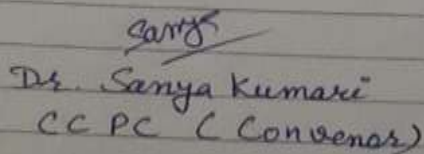 Sanya
Dr. Sanya Kumari
CCPC (Convenor)